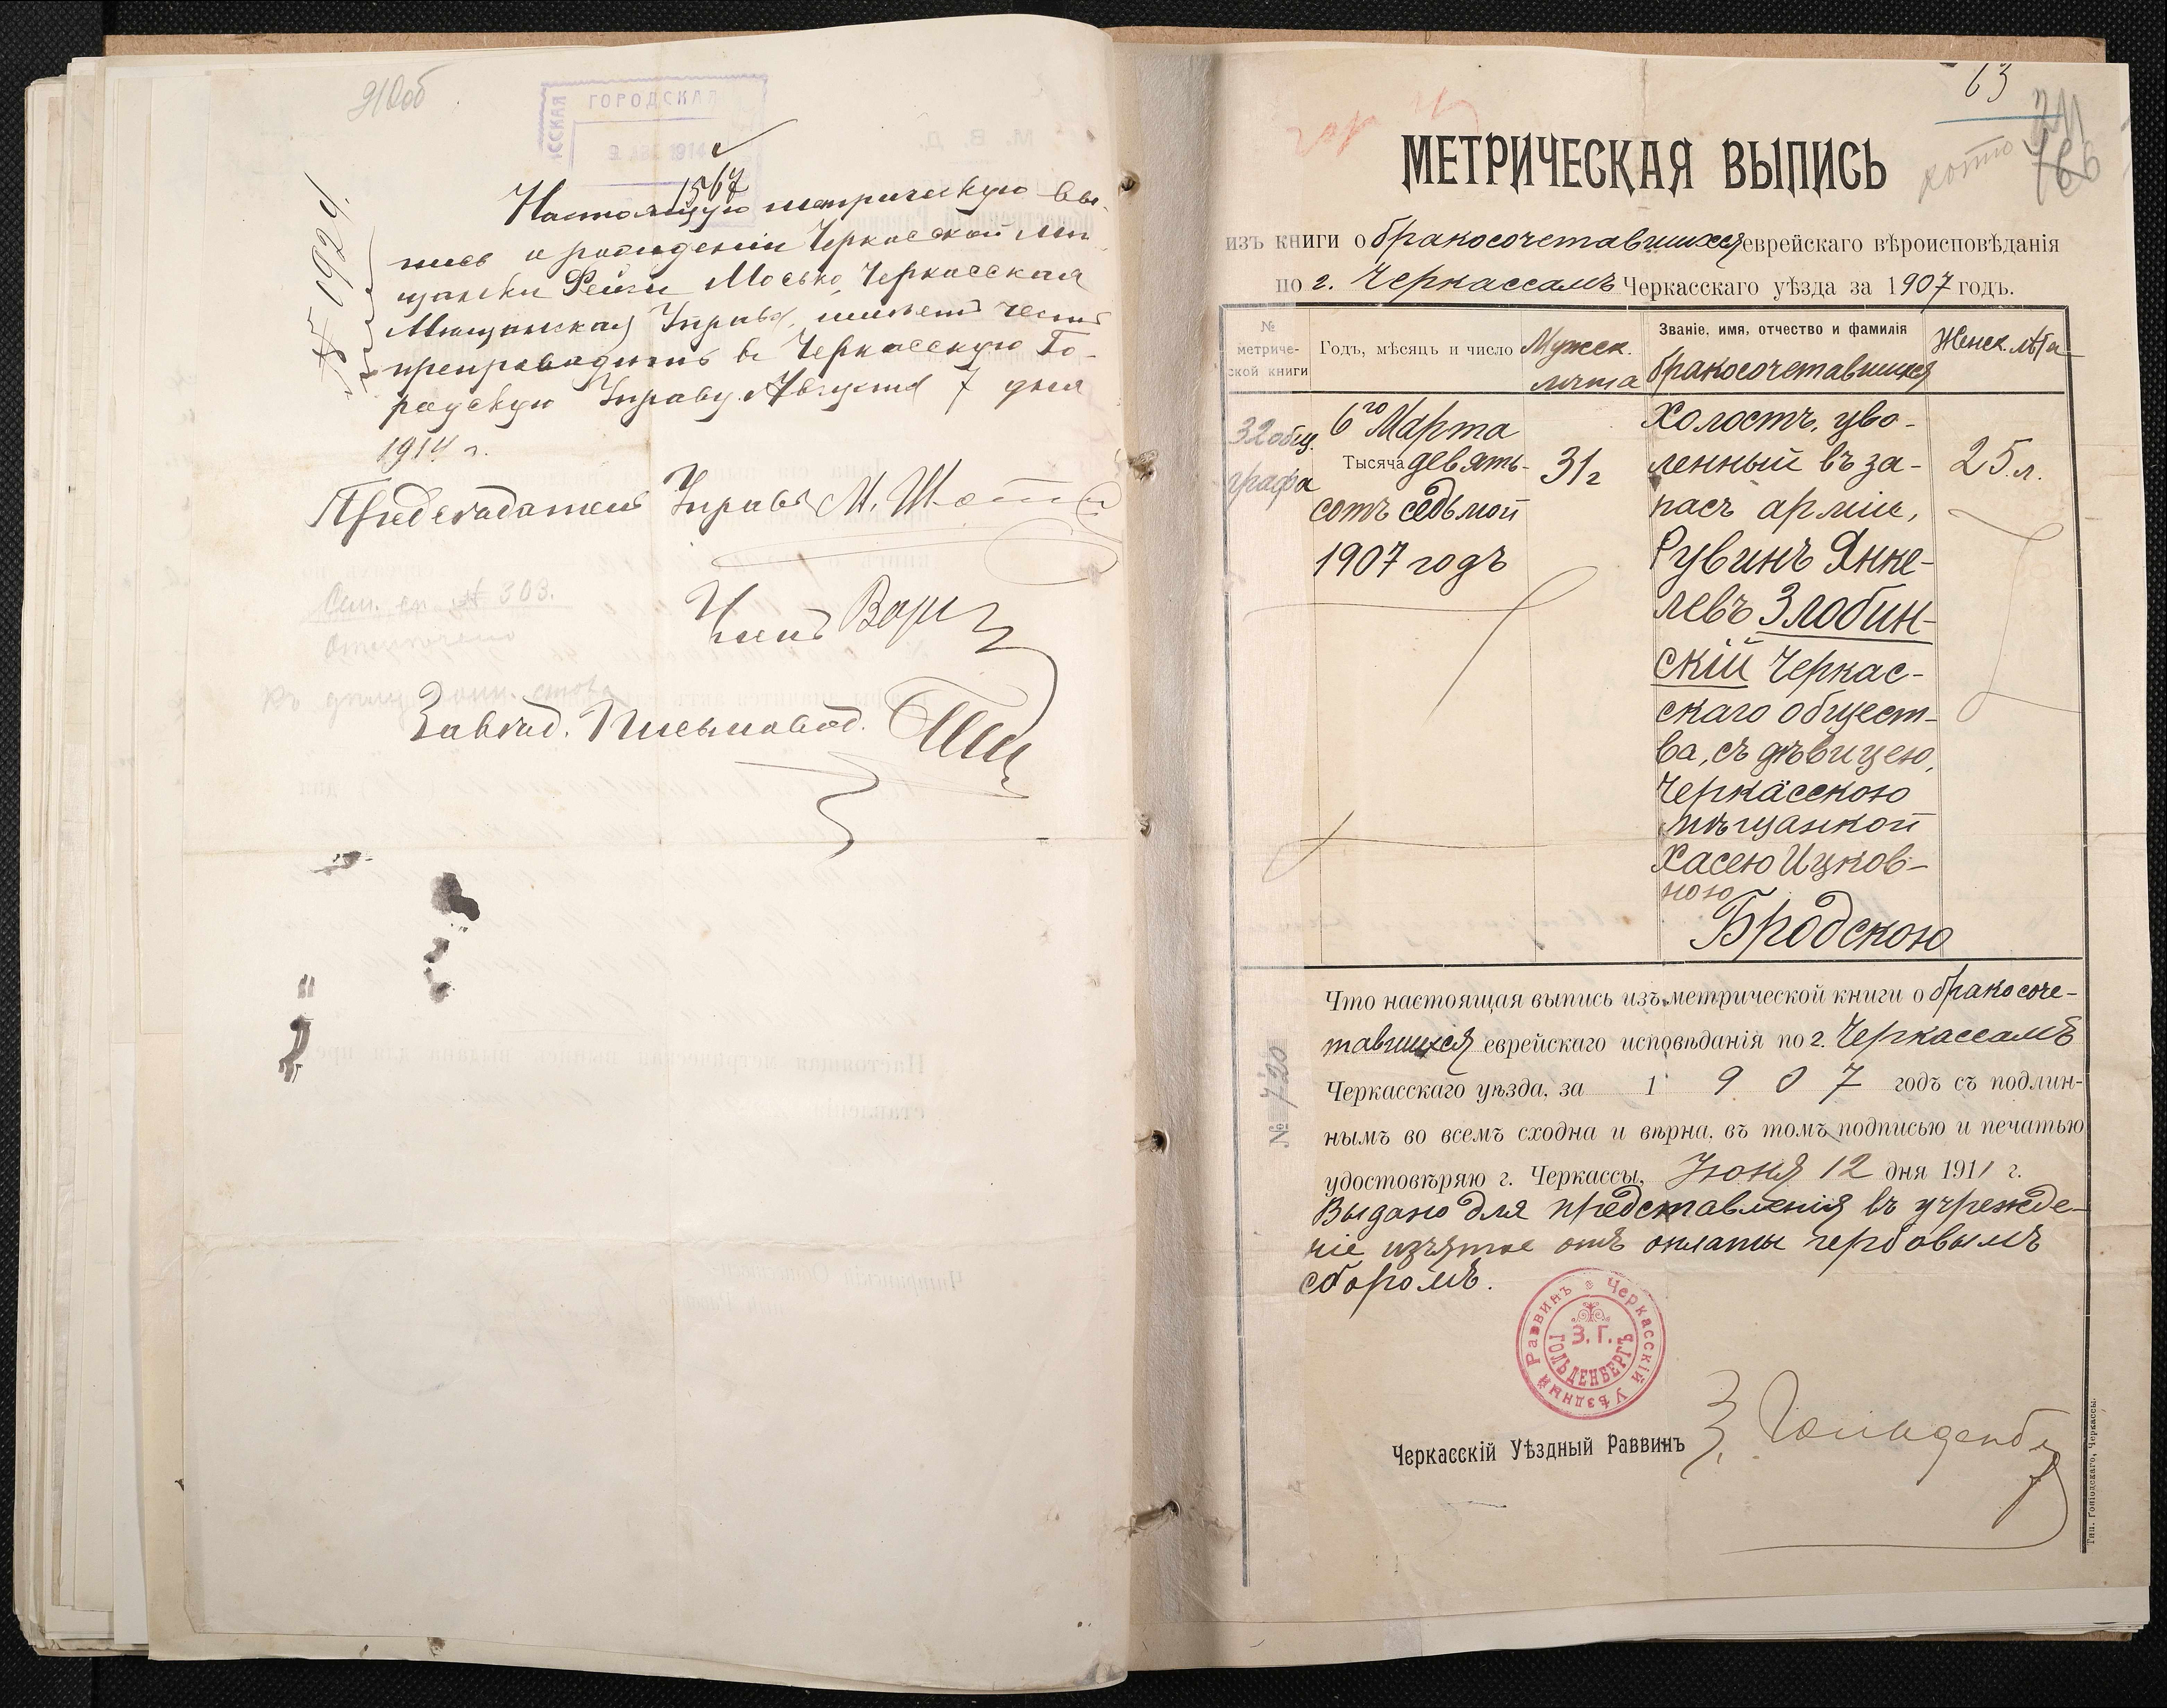 910об
ГОРОДСКАЯ
1914
1567
Настоящую метрическую вы-
пись о рожденіи Черкасской мѣ
щанки Рейзи Мосько, Черкасская
Мѣщанская Управа, имѣетъ честь
препроводить въ Черкасскую Го-
родскую Управу. Августа 7 дня
1914 г.
Предсѣдатель Управы М.
Членъ
Завѣд. Письмовод.
№ 1092
Сем. сп № 303.
Отмечено
Къ дѣлу
63
911
766
МЕТРИЧЕСКАЯ ВЫПИСЬ
изъ книги о бракосочетавшихся еврейскаго вѣроисповѣданія
по г. Черкассамъ Черкасскаго уѣзда за 1907 годъ.
№ метриче-ской книги
Годъ, мѣсяцъ и число
Мужск. лѣта
Званіе, имя, отчество и фамилія бракосочетавшихся
Женск. лѣта
32 общ. графа
6го Марта
Тысяча девять-
сотъ седьмой
1907 годъ
31 г
Холостъ, уво-
ленный въ за-
пасъ арміи,
Рувинъ Янке-
левъ Злобин-
скій Черкас-
скаго общест-
ва, съ дѣвицею,
Черкасскою
мѣщанкой
Хасею Ицков-
ною
Бродскою
25 л.
Что настоящая выпись изъ метрической книги о бракосоче-
тавшихся еврейскаго исповѣданія по г. Черкассамъ
Черкасскаго уѣзда, за 1907 годъ съ подлин-
нымъ во всемъ сходна и вѣрна, въ томъ подписью и печатью
удостовѣряю г. Черкассы, Іюня 12 дня 1911 г.
Выдано для представленія въ учрежде-
ніе изъятое отъ оплаты гербовымъ
сборомъ.
№ 720
Черкасскій Уѣздный Раввинъ
З. Г.
ГОЛЬДЕНБЕРГЪ
Черкасскій Уѣздный Раввинъ З. Гольденбергъ